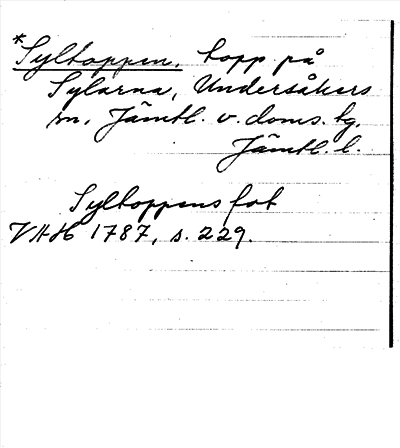 *Syltoppen, topp på
Sylarna, Undersåkers
sn, Jämtl. v. doms. tg.
Jämtl. l.
Syltoppens fot
VAH 1787, s. 229.